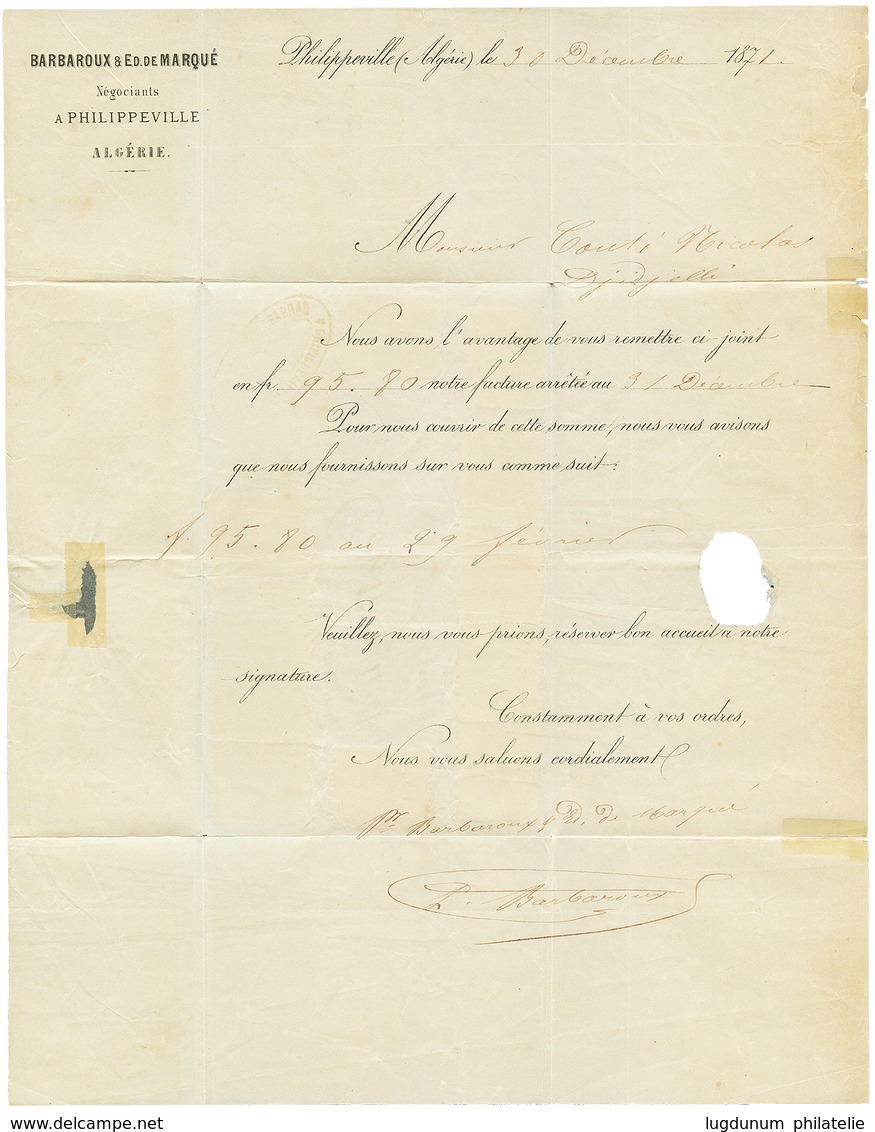 BARBAROUX & ED. DE MARQUÉ
Négociants
A PHILIPPEVILLE
ALGÉRIE.
Philippeville (Algérie) le 30 Décembre 1871.
Monsieur Conti Nicolas
Djidjelli
Nous avons l'avantage de vous remettre ci-joint
en fr. 95.80 notre facture arrêtée au 31 Décembre
Pour nous couvrir de cette somme, nous vous avisons
que nous fournissons sur vous comme suit:
f. 95.80 au 29 février
Veuillez, nous vous prions, réserver bon accueil a notre
signature.
Constamment à vos ordres,
Nous vous saluons cordialement
Pr Barbaroux & Ed. de Marqué
L. Barbaroux
delcampe.net
lugdunum philatelie